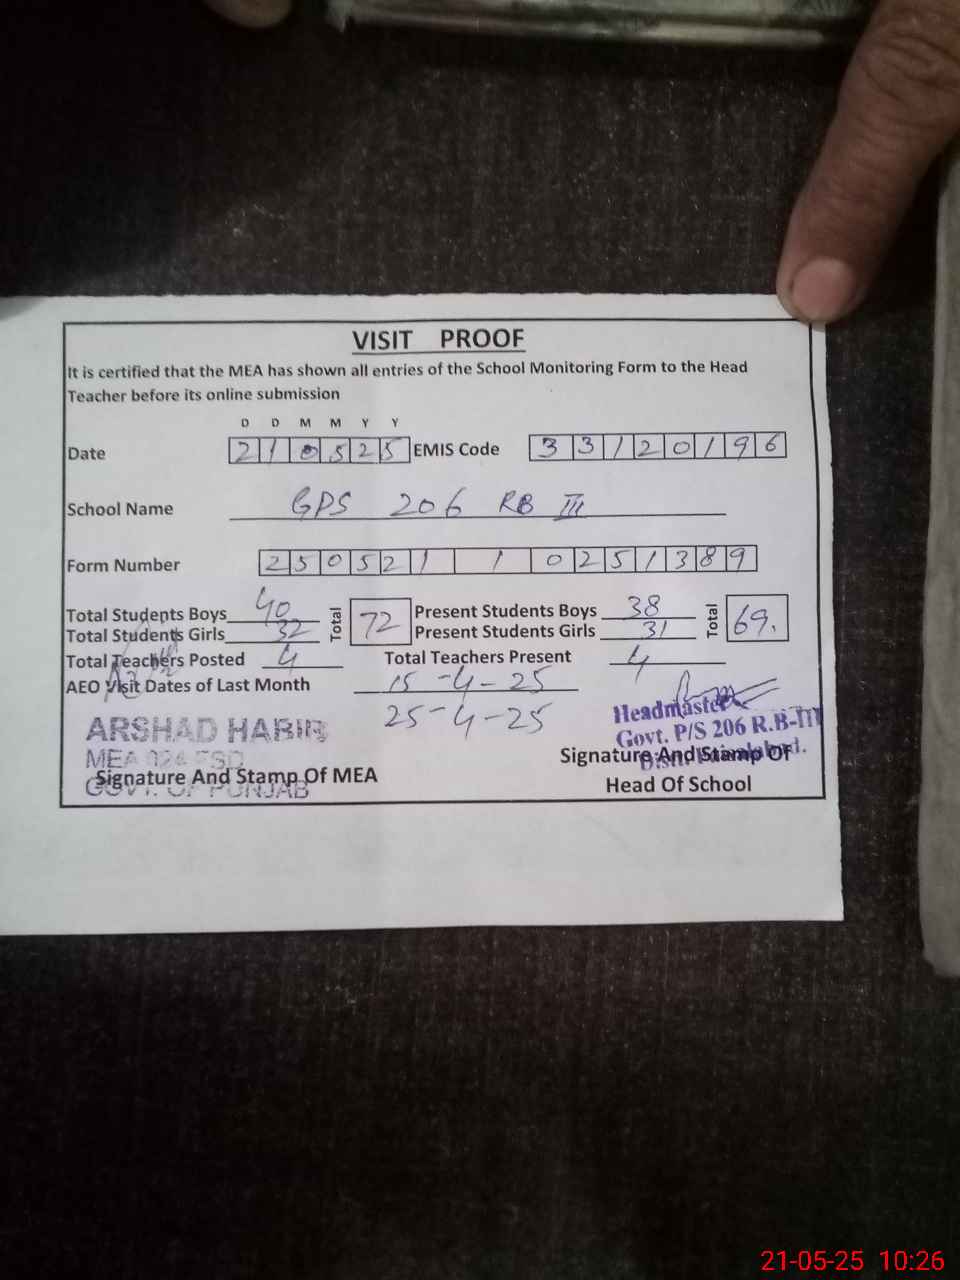 VISIT PROOF
It is certified that the MEA has shown all entries of the School Monitoring Form to the Head
Teacher before its online submission
D D M M Y Y
Date 210525 EMIS Code 33120196
School Name GPS 206 RB III
Form Number 25052110251389
Total Students Boys 40 Total 72 Present Students Boys 38 Total 69.
Total Students Girls 32 Present Students Girls 31
Total Teachers Posted 4 Total Teachers Present 4
AEO Visit Dates of Last Month 15-4-25
25-4-25
ARSHAD HABIB
MEA 024 FSD
GOVT. OF PUNJAB
Signature And Stamp Of MEA
Headmaster
Govt. P/S 206 R.B-III
Signature And Stamp Of
Head Of School
21-05-25 10:26